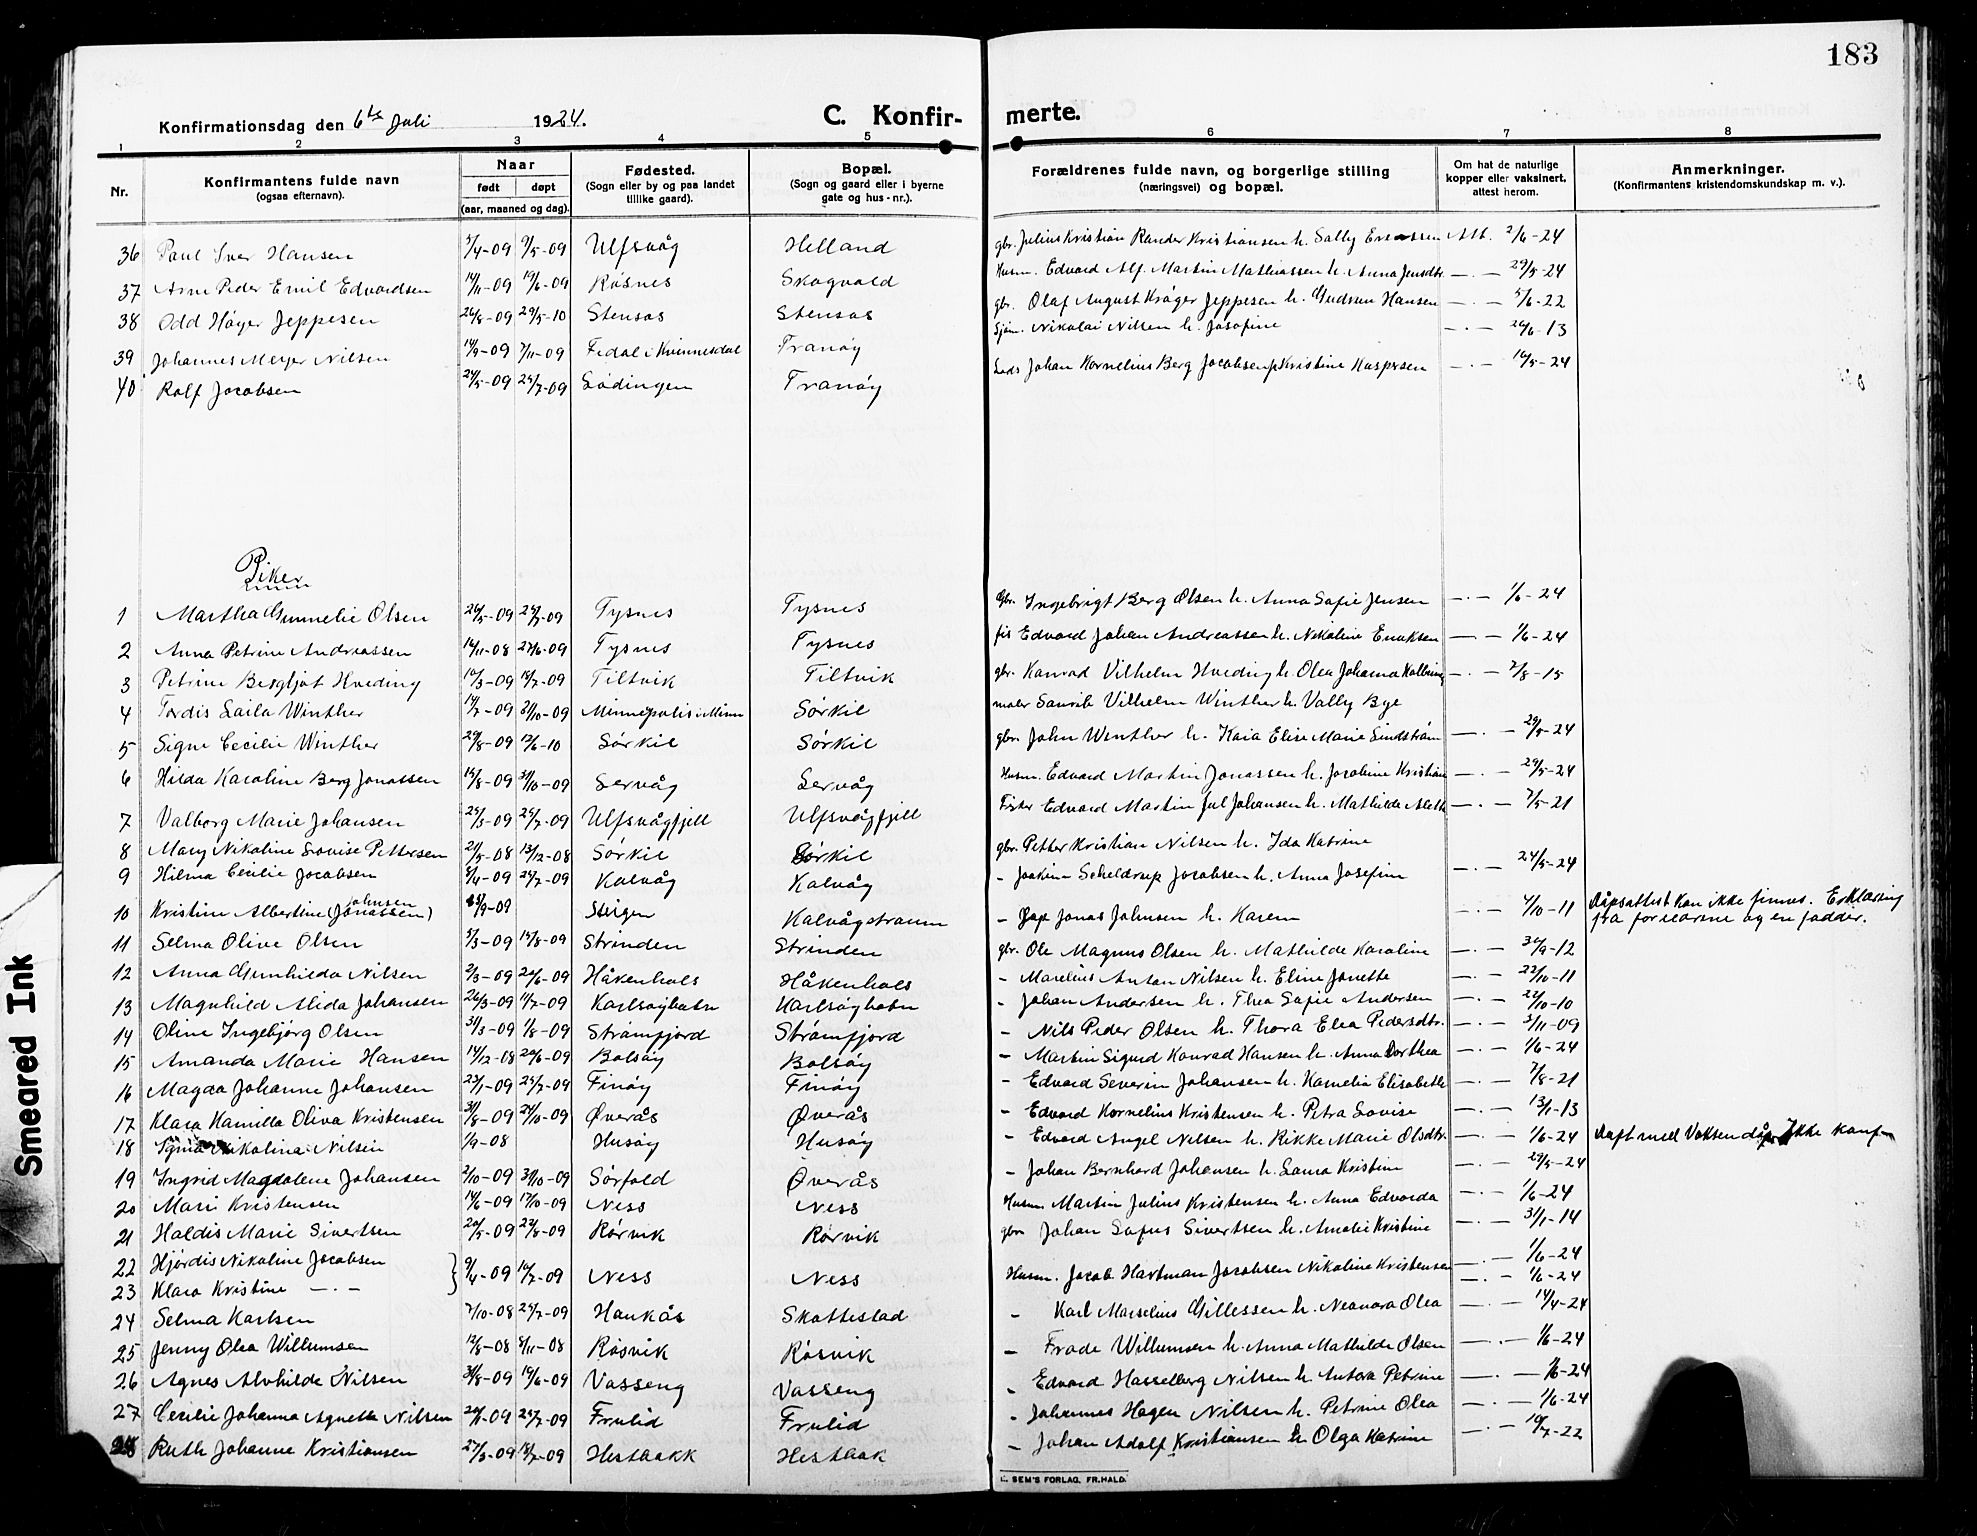 183
Konfirmationsdag den 6te Juli 1924.
C. Konfirmerte.
1 2 3 4 5 6 7 8
Nr.
Konfirmantens fulde navn (ogsaa efternavn).
Naar født døpt (aar, maaned og dag).
Fødested. (Sogn eller by og paa landet tillike gaard).
Bopæl. (Sogn og gaard eller i byerne gate og hus-nr.).
Forældrenes fulde navn, og borgerlige stilling (næringsvei) og bopæl.
Om hat de naturlige kopper eller vaksinert, attest herom.
Anmerkninger. (Konfirmantens kristendomskundskap m. v.).
36 Paul Iver Hansen 5/4-09 9/5-09 Ulfsvåg Helland gbr. Julius Kristian Rander Kristiansen h. Sally Att. 2/6-24
37 Arne Peder Emil Edvardsen 14/11-09 19/6-09 Røsnes Skogvold Husm. Edvard Alf. Martin Mathiassen h. Anna Jensdtr. —·— 29/5-24
38 Odd Høyer Jeppesen 26/8-09 29/5-10 Stensos Stensos gbr. Olaf August Krøger Jeppesen h. Gudrun Hansen —·— 5/6-22
39 Johannes Meyer Nilsen 14/9-09 7/11-09 Fedal i Kvinnesdal Tranøy Sjøm. Nikolai Nilsen h. Josefine —·— 26/6-13
40 Rolf Jacobsen 24/5-09 25/7-09 Lødingen Tranøy Johan Kornelius Berg Jacobsen Kristine Kaspersen —·— 16/5-24
Piker
1 Martha Gunnelie Olsen 26/5-09 25/7-09 Tysnes Tysnes Gbr. Ingebrigt Berg Olsen h. Anna Sofie Jensen —·— 1/6-24
2 Anna Petrine Andreassen 14/11-08 27/6-09 Tysnes Tysnes fis Edvard Johan Andreassen h. Nikoline Enoksen —·— 1/6-24
3 Petrine Bergljot Hveding 10/3-09 18/7-09 Tiltvik Tiltvik gbr. Konrad Vilhelm Hveding h. Olea Johanna —·— 2/8-15
4 Tordis Laila Winther 14/7-09 31/10-09 Minnepolis i Minn Sørkil maler Vilhelm Winther h. Vally Bye
5 Signe Cecilie Winther 29/8-09 12/6-10 Sørkil Sørkil gbr. John Winther h. Kaia Elise Marie Lindstrøm —·— 29/5-24
6 Hilda Karoline Berg Jonassen 15/8-09 31/10-09 Servåg Servåg Husm. Edvard Martin Jonassen h. Jacobine Kristian —·— 29/5-24
7 Valborg Marie Johansen 25/3-09 25/7-09 Ulfsvågfjell Ulfsvågfjell Fisker Edvard Martin Jul Johansen h. Mathilde Aleth —·— 7/5-21
8 Mary Nikoline Lovise Pettersen 21/5-08 13/12-08 Sørkil Sørkil gbr. Petter Kristian Nilsen h. Ida Katrine
9 Hilma Cecilie Jacobsen 8/4-09 25/7-09 Kalvåg Kalvåg - Joakim Scheldrup Jacobsen h. Anna Josefine —·— 24/5-24
10 Kristine Albertine (Jonassen) Johnsen 23/9-09 Steigen Kalvågstraum - Jonas Johnsen h. Karen —·— 4/10-11 Dåpsattest kan ikke finnes. Erklæring
fra foreldrene og en fadder.
11 Selma Olive Olsen 5/3-09 15/8-09 Strinden Strinden gbr. Ole Magnus Olsen h. Mathilde Karoline —·— 30/9-12
12 Anna Gunhilda Nilsen 2/3-09 20/6-09 Håkenhals Håkenhals - Marelius Anton Nilsen h. Eline Jonette —·— 22/10-11
13 Magnhild Alida Johansen 26/3-09 11/7-09 Karlsøyhabn Karlsøyhabn - Johan Andersen h. Thea Sofie Andersen —·— 22/10-10
14 Oline Ingebjørg Olsen 31/3-09 1/8-09 Strømfjord Strømfjord - Nils Peder Olsen h. Thora Elea Pedersdtr. —·— 3/11-09
15 Amanda Marie Hansen 14/12-08 20/6-09 Bolsøy Bolsøy - Martin Sigurd Konrad Hansen h. Anna Dorthea —·— 1/6-24
16 Magda Johanne Johansen 23/1-09 25/7-09 Finøy Finøy - Edvard Severin Johansen h. Kornelia Elisabeth —·— 7/8-21
17 Klara Kamilla Oliva Kristensen 31/8-09 24/10-09 Øverås Øverås - Edvard Kornelius Kristensen h. Petra Lovise —·— 13/1-13
18 Nikolina Nilsen 1/9-08 Husøy Husøy - Edvard Angel Nilsen h. Rikke Marie Olsdtr. —·— 1/6-24 Døpt med Voksen dåp. Ikke konf
19 Ingrid Magdalene Johansen 2/10-09 31/10-09 Sørfold Øverås - Johan Bernhard Johansen h. Laura Kristine —·— 29/5-24
20 Marie Kristensen 14/6-09 17/10-09 Ness Ness Husm Martin Julius Kristensen h. Anna Edvarda —·— 1/6-24
21 Haldis Marie Sivertsen 20/5-09 22/8-09 Rørvik Rørvik gbr Johan Sofus Sivertsen h. Amalie Kristine —·— 31/1-14
22 Hjørdis Nikoline Jacobsen } 9/4-09 10/7-09 Ness Ness Husm. Jacob Hartman Jacobsen Nikoline Kristensen —·— 1/6-24
23 Klara Kristine —·— —·— 1/6-24
24 Selma Karlsen 7/10-08 25/7-09 Haukås Skottestad - Karl Marselius Gillessen h. Neanora Olea —·— 14/4-24
25 Jenny Olea Willumsen 12/8-08 8/11-08 Røsvik Røsvik - Frode Willumsen h. Anna Mathilde Olsen —·— 1/6-24
26 Agnes Alvhilde Nilsen 31/8-09 19/6-09 Vasseng Vasseng - Edvard Hasselberg Nilsen h. Antora Petrine —·— 1/6-24
27 Cecilie Johanna Agnetha Nilsen 20/1-09 25/7-09 Frulid Frulid - Johannes Hagen Nilsen h. Petrine Olea —·— 1/6-24
28 Ruth Johanne Kristiansen 27/3-09 18/7-09 Hestbakk Hestbak - Johan Adolf Kristiansen h Olga Katrine —·— 10/7-22
SEM'S FORLAG, FR.HALD.
Smeared Ink